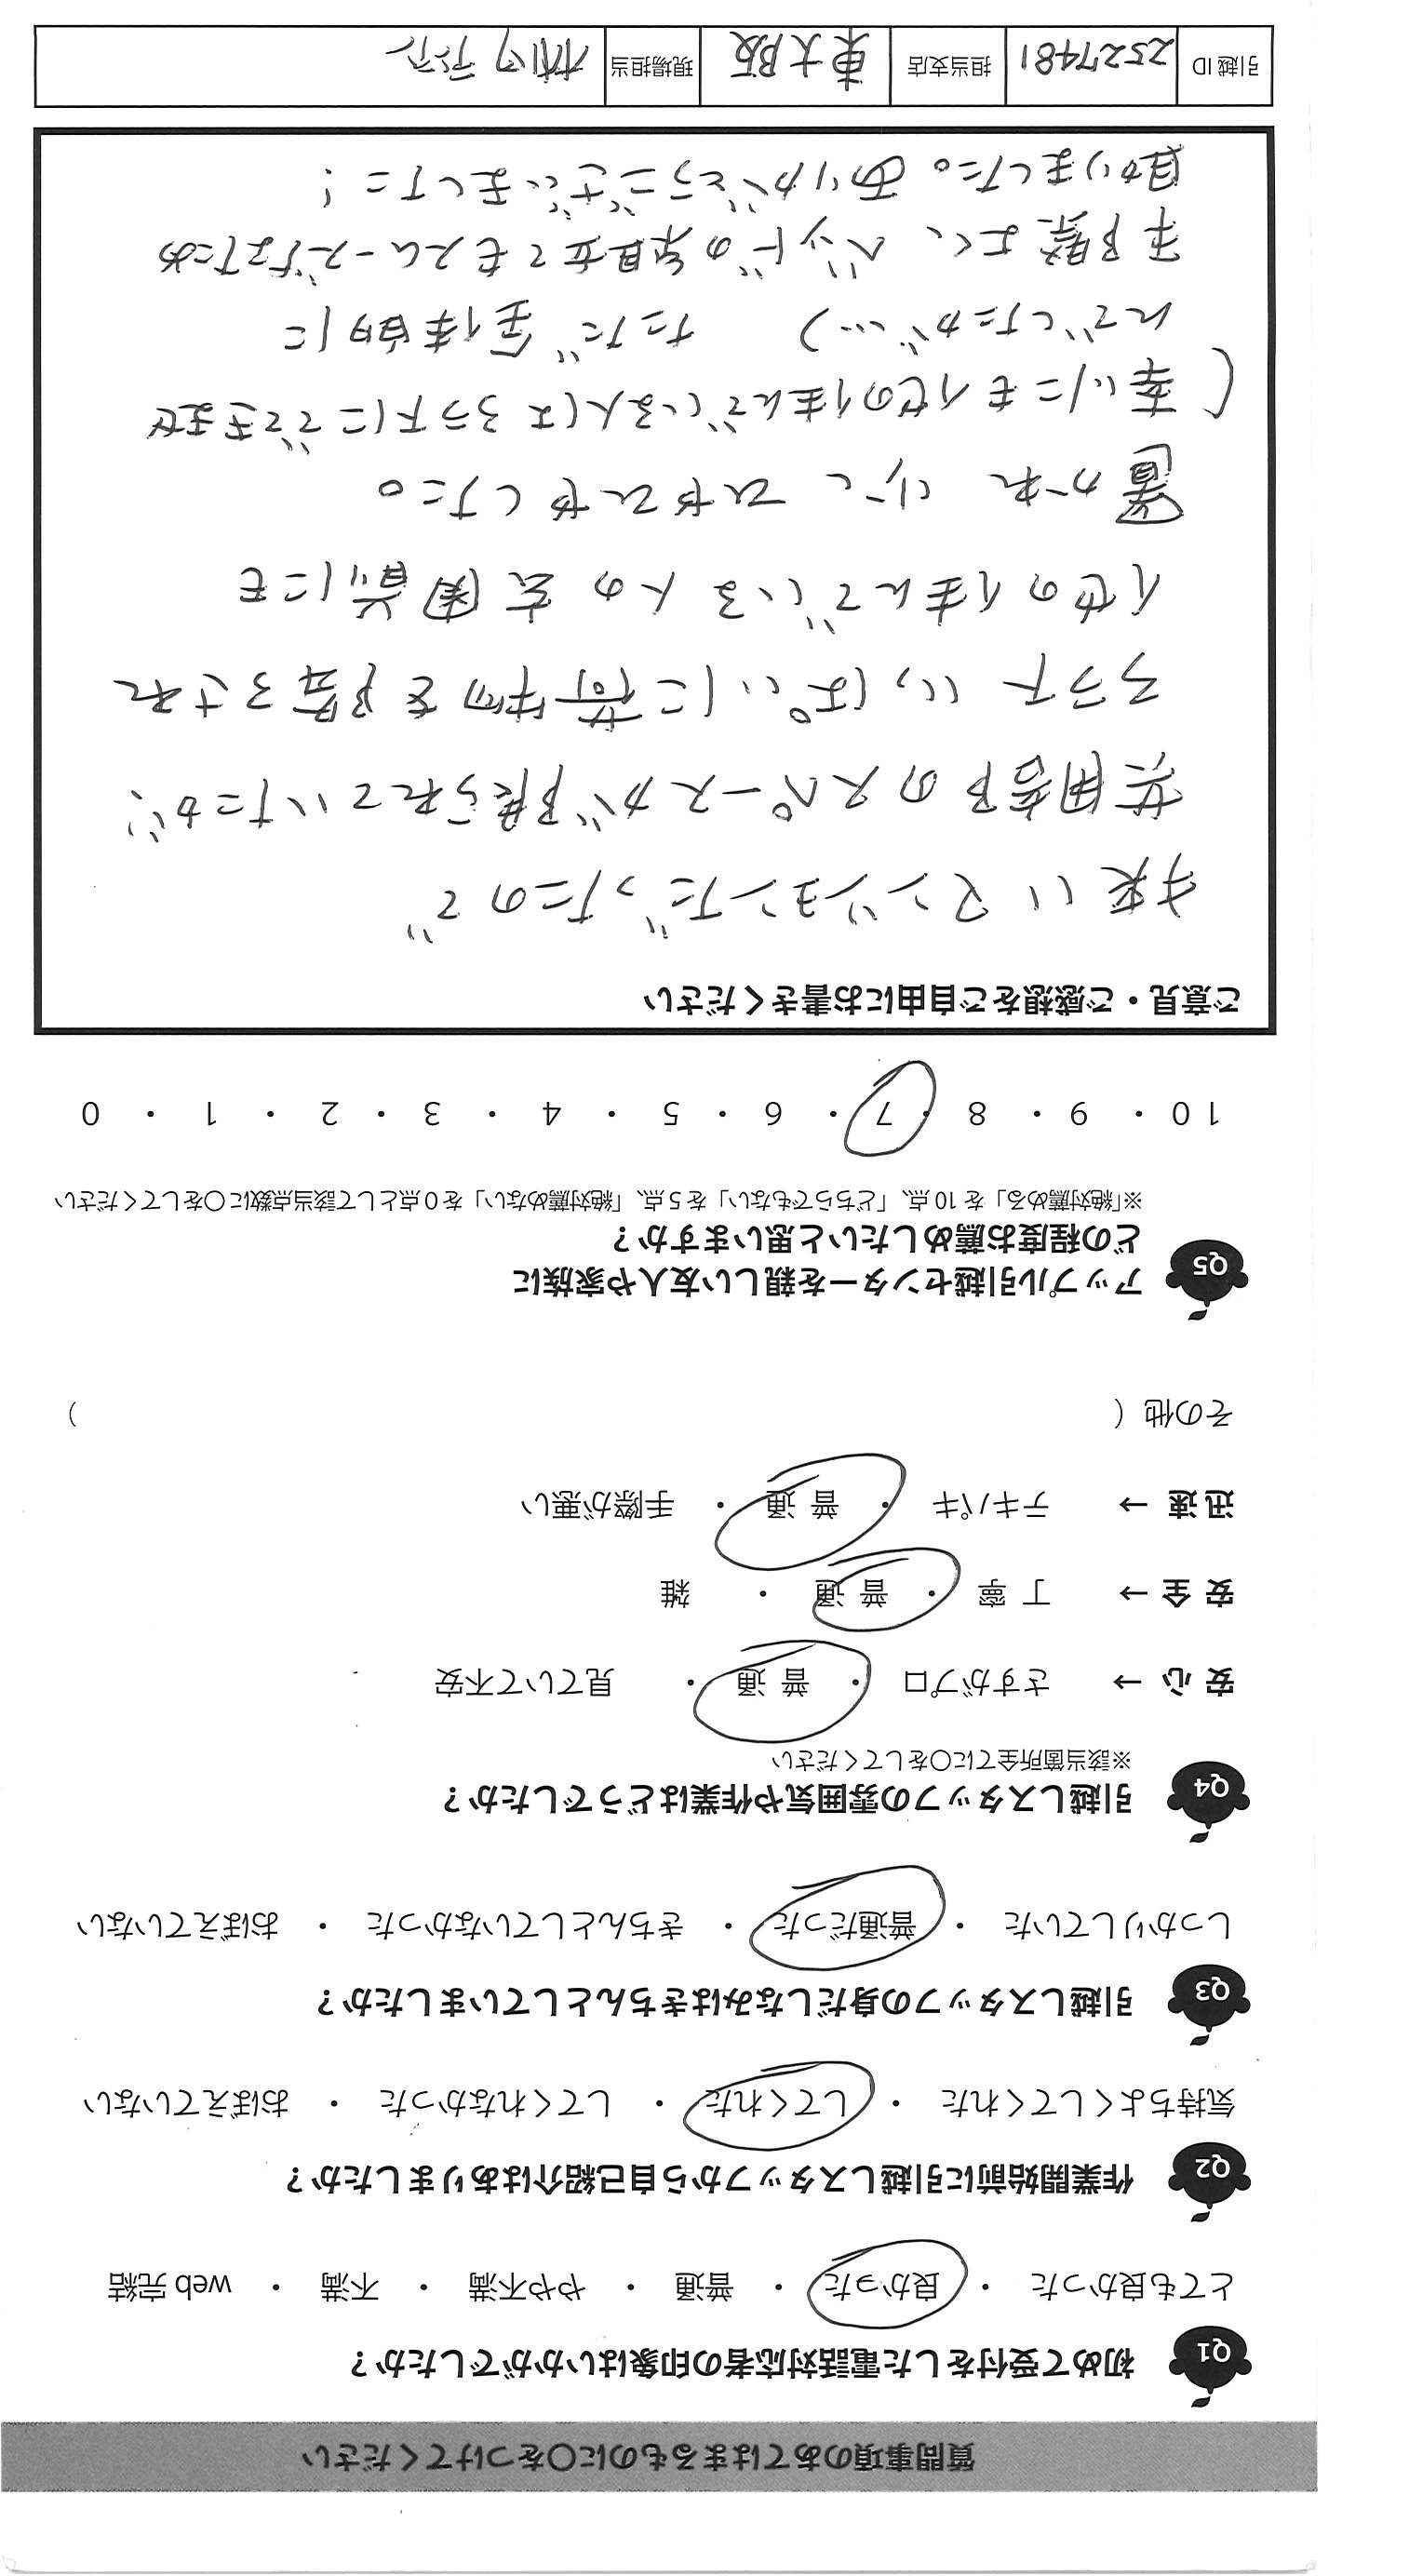 質問事項のあてはまるものに○をつけてください
Q1 初めて受付をした電話対応者の印象はいかがでしたか？
とても良かった ・ 良かった ・ 普通 ・ やや不満 ・ 不満 ・ web 完結
Q2 作業開始前に引越しスタッフから自己紹介はありましたか？
気持ちよくしてくれた ・ してくれた ・ してくれなかった ・ おぼえていない
Q3 引越しスタッフの身だしなみはきちんとしていましたか？
しっかりしていた ・ 普通だった ・ きちんとしていなかった ・ おぼえていない
Q4 引越しスタッフの雰囲気や作業はどうでしたか？
※該当箇所全てに○をしてください
安 心 → さすがプロ ・ 普 通 ・ 見ていて不安
安 全 → 丁 寧 ・ 普 通 ・ 雑
迅 速 → テキパキ ・ 普 通 ・ 手際が悪い
その他（ ）
Q5 アップル引越センターを親しい友人や家族に
どの程度お薦めしたいと思いますか？
※「絶対薦める」を 10 点、「どちらでもない」を 5 点、「絶対薦めない」を 0 点として該当点数に○をしてください
10 ・ 9 ・ 8 ・ 7 ・ 6 ・ 5 ・ 4 ・ 3 ・ 2 ・ 1 ・ 0
ご意見・ご感想をご自由にお書きください
狭いマンションだったので
共用部のスペースが限られていたが、
ろう下いっぱいに荷物を降ろされ
他の住んでいる人の玄関前にも
置かれ 少し ひやひやした。
（幸いにも他の住んでいる人はろう下にでてきませ
んでしたが…） ただ 全体的に
手際よく、ベッドの組立てもスムーズだったため
助かりました。ありがとうございました！
引越 ID 2527481 担当支店 東大阪 現場担当